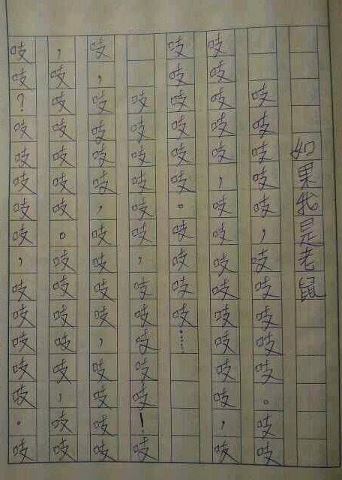 如果我是老鼠
吱吱吱吱吱，吱吱吱吱吱。吱吱
吱吱吱吱吱，吱吱吱吱吱吱吱吱，吱
吱吱吱吱吱吱。吱吱吱吱……
吱吱吱吱吱吱，吱吱吱吱吱！吱
吱，吱吱吱吱，吱吱吱吱，吱吱吱吱
，吱吱吱吱吱吱。吱吱吱吱吱，吱吱
吱吱？吱吱吱吱吱，吱吱吱吱吱。吱